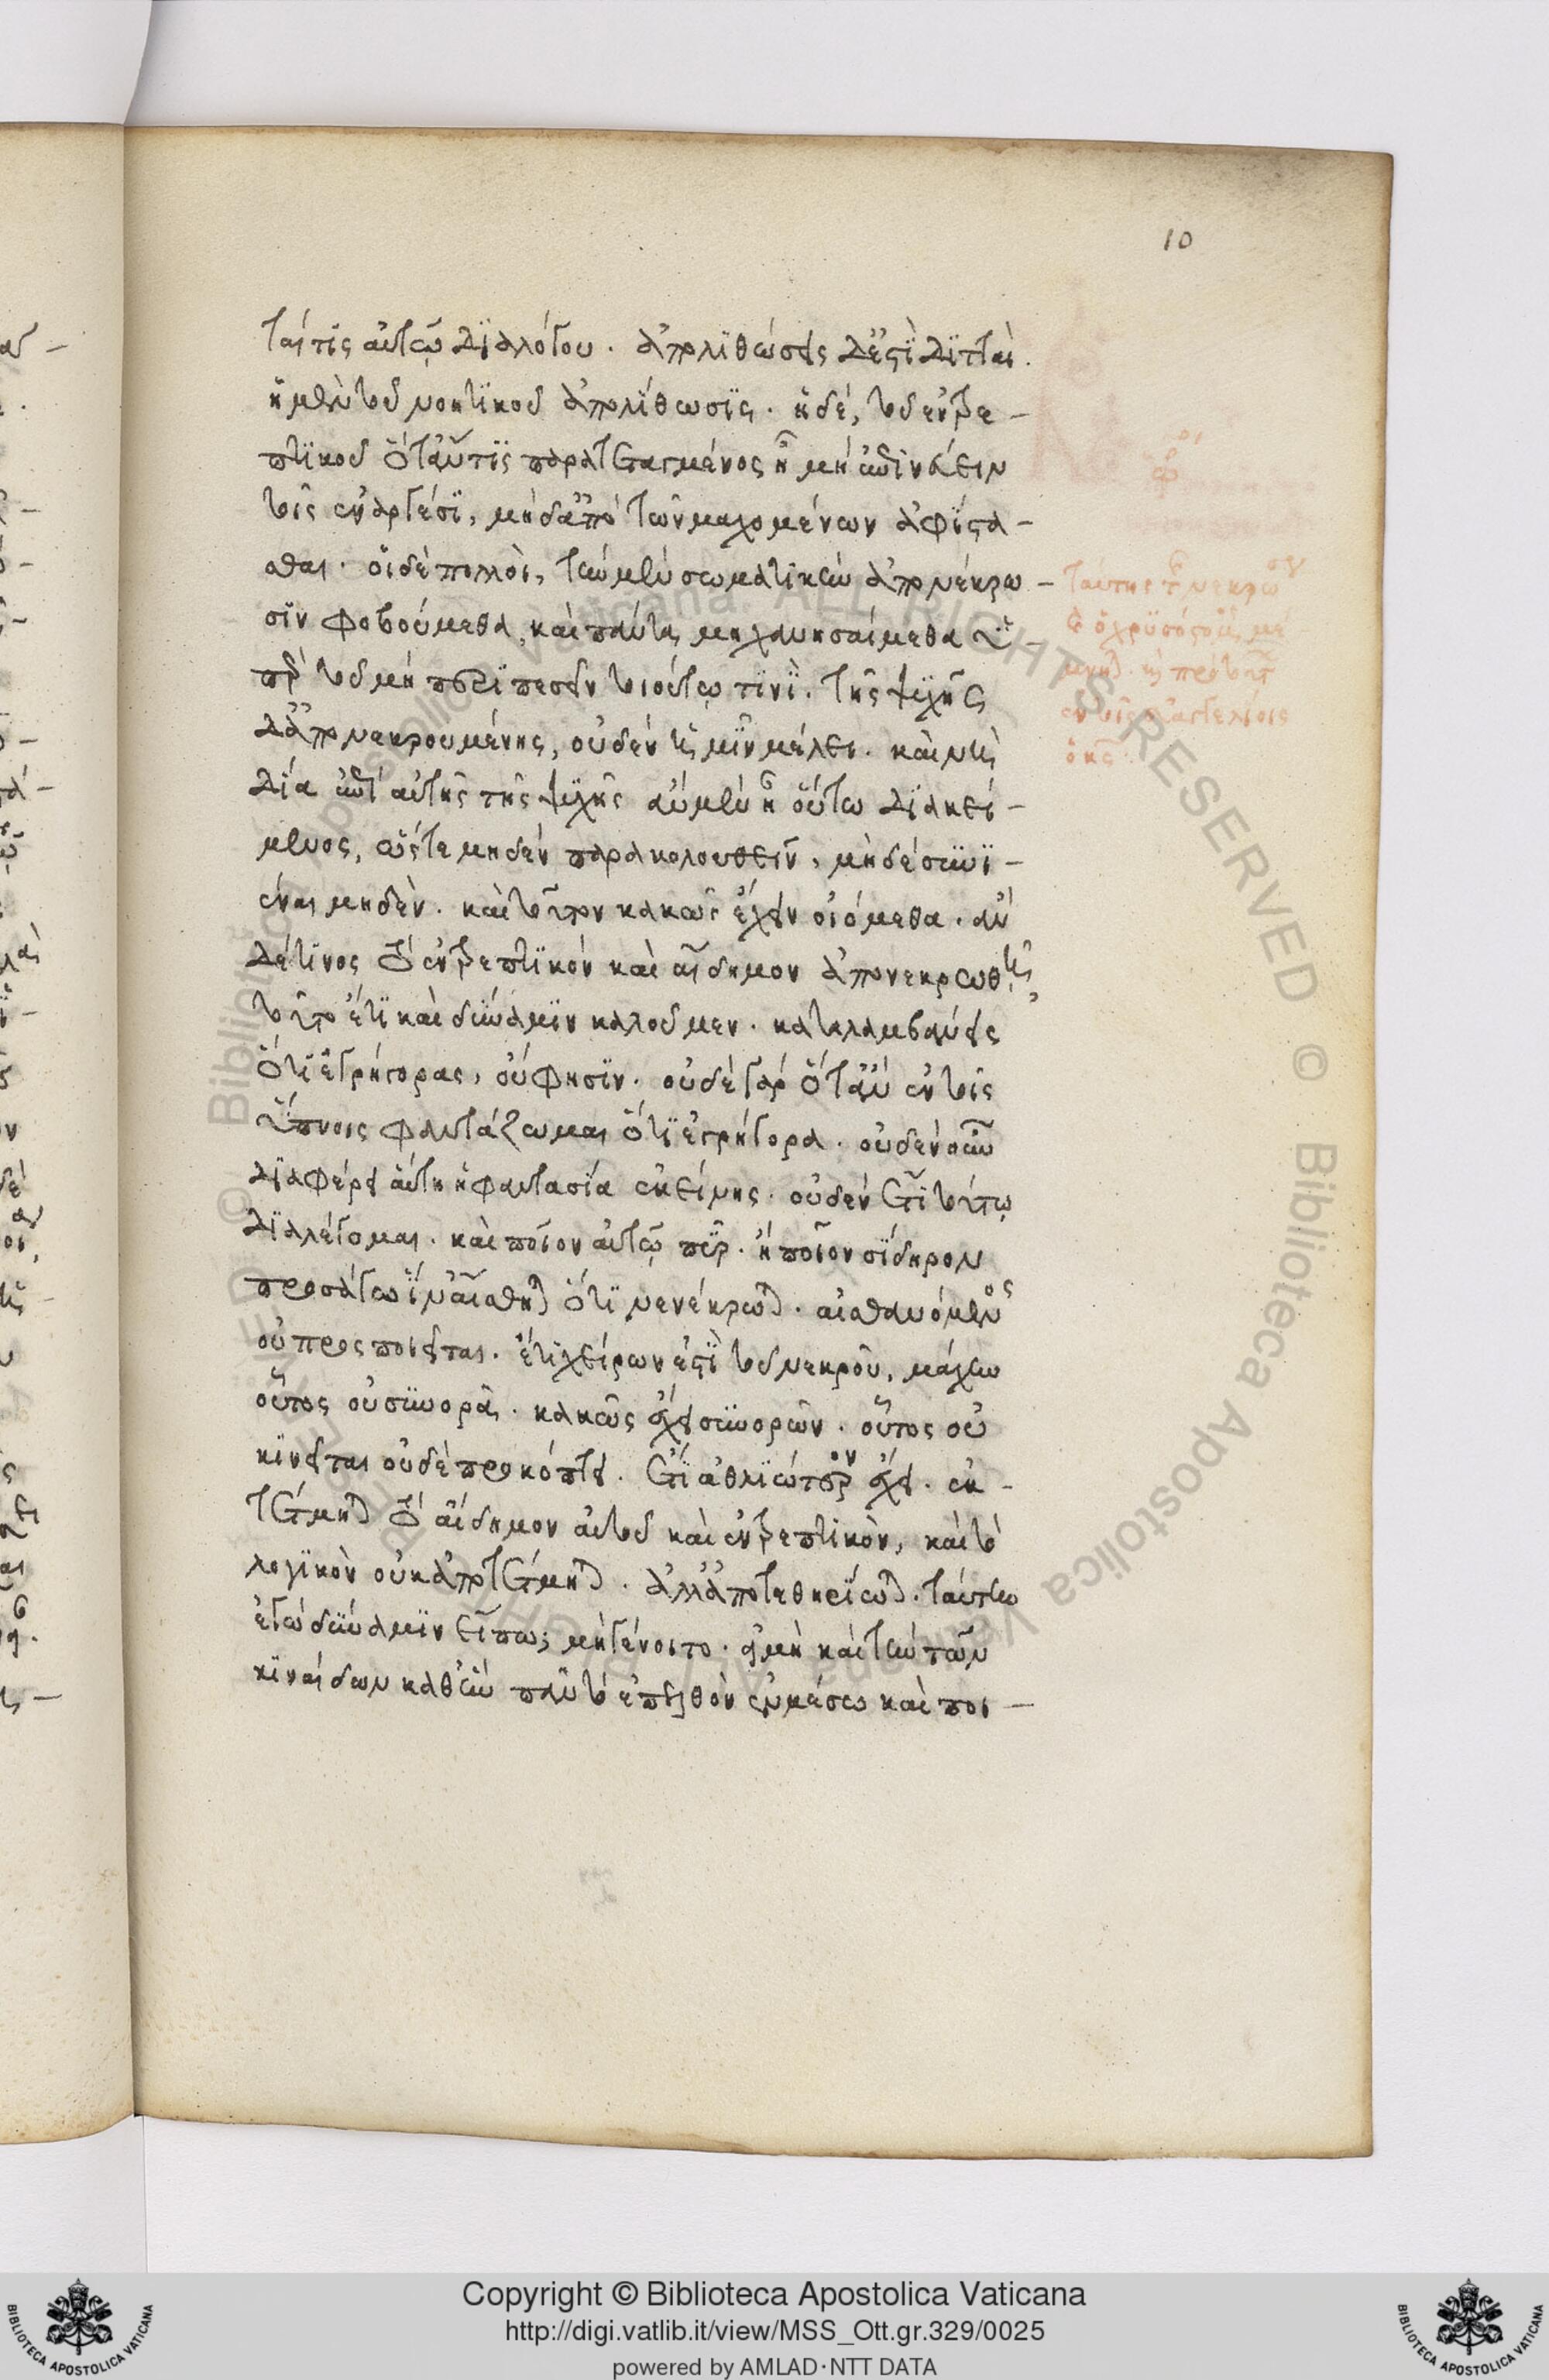 10
ται τίς αὐτῷ διαλόγου. ἀπολιθώσεις δ' ἐστὶ διτταί.
ἡ μὲν τοῦ νοητικοῦ ἀπολίθωσις. ἡ δέ, τοῦ ἐντρε-
πτικοῦ ὅταν τις παρατεταγμένος ᾖ μὴ ἐπινεύειν
τοῖς ἐναργέσι, μηδ' ἀπὸ τῶν μαχομένων ἀφίστα-
σθαι. οἱ δὲ πολλοὶ, τὴν μὲν σωματικὴν ἀπονέκρω-
σιν φοβούμεθα, καὶ πάντα μηχανησαίμεθα ὑ-
πὲρ τοῦ μὴ περιπεσεῖν τοιούτῳ τινί. τῆς ψυχῆς
δ' ἀπονεκρουμένης, οὐδὲν ἡμῖν μέλει. καὶ νὴ
δία ἐπὶ αὐτῆς τῆς ψυχῆς ἂν μὲν ᾖ οὕτω διακεί-
μενος, ὥστε μηδὲν παρακολουθεῖν, μηδὲ συνι-
έναι μηδὲν. καὶ τοῦτον κακῶς ἔχειν οἰόμεθα. ἂν
δέ τινος τὸ ἐντρεπτικόν καὶ αἰδῆμον ἀπονεκρωθῇ,
τοῦτο ἔτι καὶ δύναμιν καλοῦμεν. καταλαμβάνεις
ὅτι ἐγρήγορας, οὔ φησιν. οὐδὲ γάρ ὅταν ἐν τοῖς
ὕπνοις φαντάζωμαι ὅτι ἐγρήγορα. οὐδὲν οὖν
διαφέρει αὕτη ἡ φαντασία ἐκείνης. οὐδέν ἔτι τούτῳ
διαλέγομαι. καὶ ποῖον αὐτῷ πῦρ. ἢ ποῖον σίδηρον
προσάγω ἵν' αἴσθηται ὅτι νενέκρωται. αἰσθανόμενος
οὐ προσποιεῖται. ἔτι χείρων ἐστὶ τοῦ νεκροῦ, μάχην
οὗτος οὐ συνορᾷ. κακῶς ἔχει συνορῶν. οὗτος οὐ
κινεῖται οὐδὲ προκόπτει. ἔτι ἀθλιώτερον ἔχει. ἐκ-
τέτμηται τὸ αἰδῆμον αὐτοῦ καὶ ἐντρεπτικὸν, καὶ τὸ
λογικὸν οὐκ ἀποτέτμηται. ἀλλ' ἀποτεθηρίωται. ταύτην
ἐγὼ δύναμιν εἴπω; μὴ γένοιτο. εἰ μὴ καὶ τὴν τῶν
κιναίδων καθ' ἣν πᾶν τὸ ἐπελθὸν ἐν μέσῳ καὶ ποι-
Copyright © Biblioteca Apostolica Vaticana
http://digi.vatlib.it/view/MSS_Ott.gr.329/0025
powered by AMLAD·NTT DATA